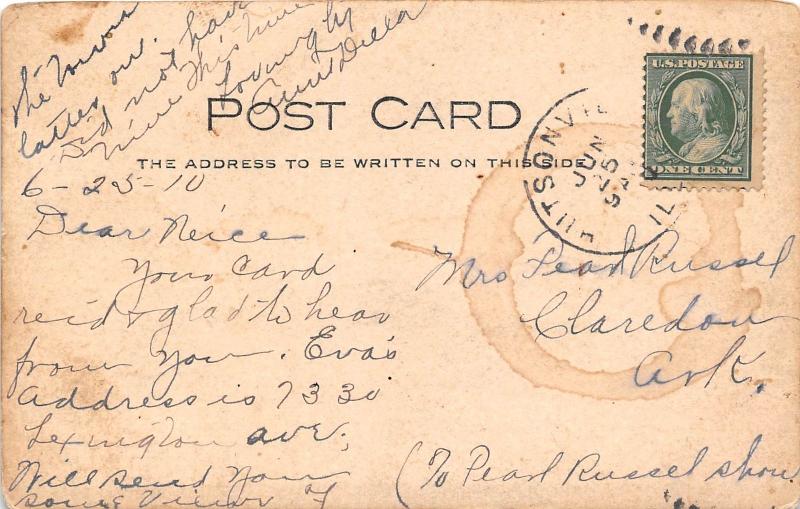 POST CARD
THE ADDRESS TO BE WRITTEN ON THIS SIDE
U.S. POSTAGE
ONE CENT
HUTSONVI
JUN
25
9 A
ILL
6-25-10
Dear Neice
Your Card
rei'd & glad to hear
from you. Eva's
Address is 7330
Lexington ave,
Will send you
some views of
the town
latter on.
Did not have
time
Lovingly
Aunt Della
Mrs Pearl Russel
Claredon
Ark.
(To Pearl Russel show